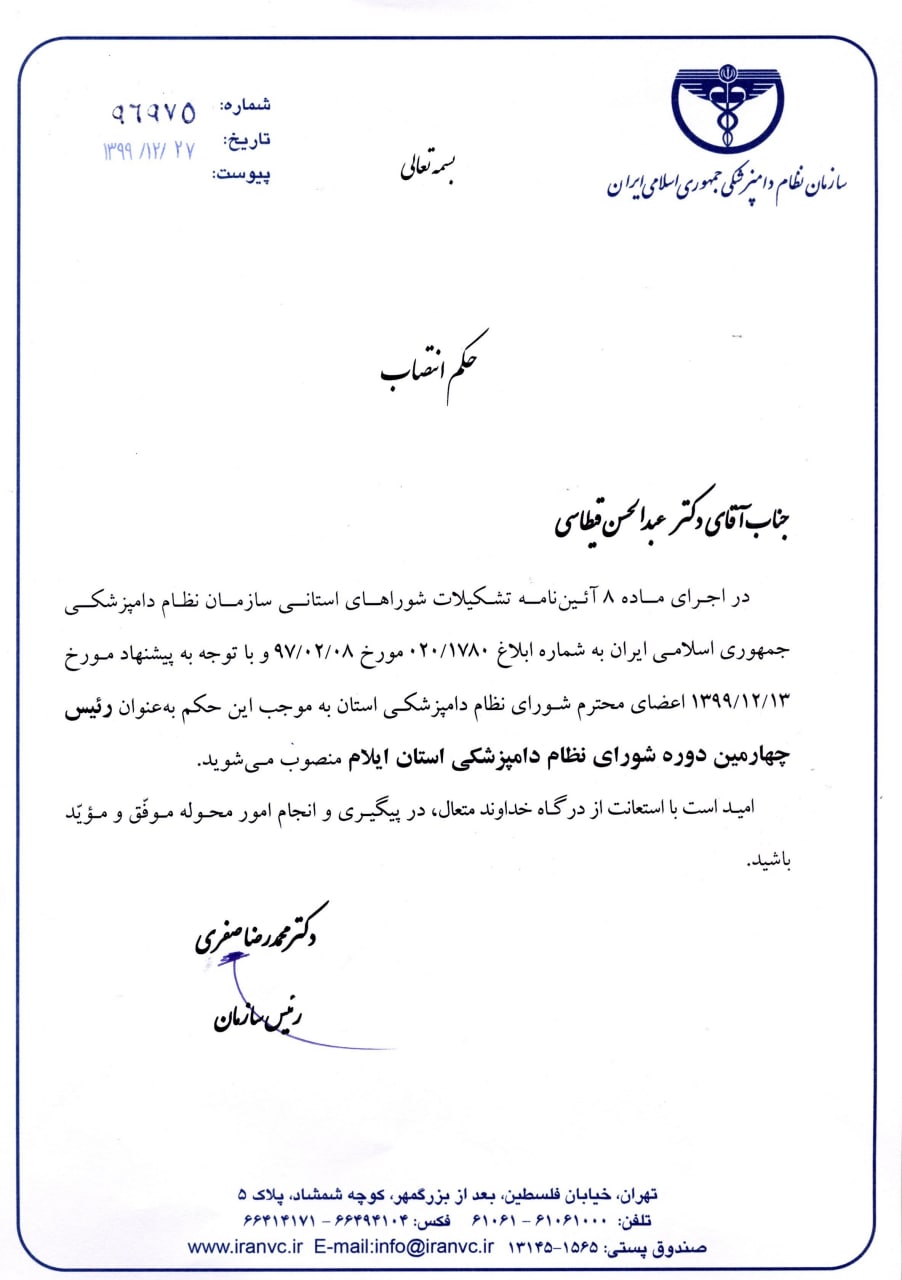 سازمان نظام دامپزشکی جمهوری اسلامی ایران
بسمه تعالی
شماره: ۹۶۹۷۵
تاریخ: ۱۳۹۹/۱۲/۲۷
پیوست:
حکم انتصاب
جناب آقای دکتر عبدالحسن قیطاسی
در اجرای ماده ۸ آئین‌نامه تشکیلات شوراهای استانی سازمان نظام دامپزشکی
جمهوری اسلامی ایران به شماره ابلاغ ۰۲۰/۱۷۸۰ مورخ ۹۷/۰۲/۰۸ و با توجه به پیشنهاد مورخ
۱۳۹۹/۱۲/۱۳ اعضای محترم شورای نظام دامپزشکی استان به موجب این حکم به‌عنوان رئیس
چهارمین دوره شورای نظام دامپزشکی استان ایلام منصوب می‌شوید.
امید است با استعانت از درگاه خداوند متعال، در پیگیری و انجام امور محوله موفّق و مؤیّد
باشید.
دکتر محمدرضا صفری
رئیس سازمان
تهران، خیابان فلسطین، بعد از بزرگمهر، کوچه شمشاد، پلاک ۵
تلفن: ۶۱۰۶۱۰۰۰ - ۶۱۰۶۱ فکس: ۶۶۴۹۴۱۰۴ - ۶۶۴۱۴۱۷۱
صندوق پستی: ۱۵۶۵-۱۳۱۴۵ www.iranvc.ir E-mail:info@iranvc.ir